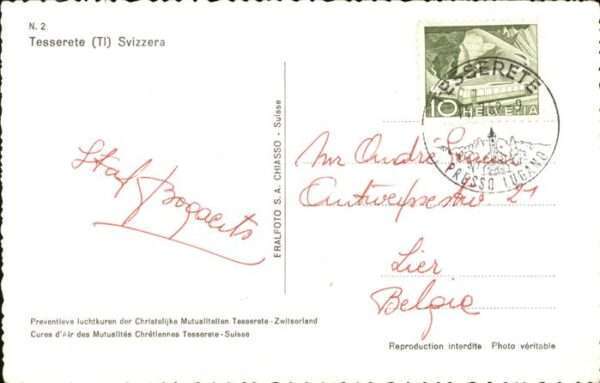 N. 2
Tesserete (TI) Svizzera
10
HELVETIA
TESSERETE
PRESSO LUGANO
ERALFOTO S. A. CHIASSO - Suisse
Staf Bogaerts
Mr André
21
Lier
Belgie
Preventieve luchtkuren der Christelijke Mutualiteiten Tesserete-Zwitserland
Cures d'Air des Mutualités Chrétiennes Tesserete-Suisse
Reproduction interdite Photo véritable